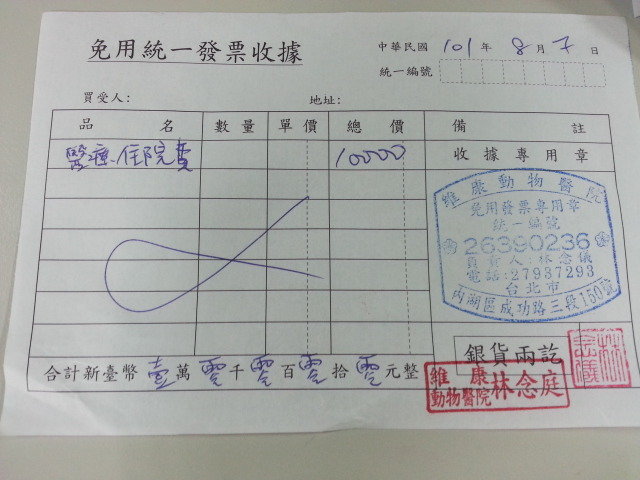 免用統一發票收據
中華民國 101 年 8 月 7 日
統一編號
買受人: 地址:
品名 數量 單價 總價 備註
醫療.住院費 10000 收據專用章
維康動物醫院
免用發票專用章
統一編號
26390236
負責人:林念儀
電話:27937293
台北市
內湖區成功路三段150號
銀貨兩訖
合計新臺幣 壹 萬 零 千 零 百 零 拾 零 元整
維康
動物醫院 林念庭